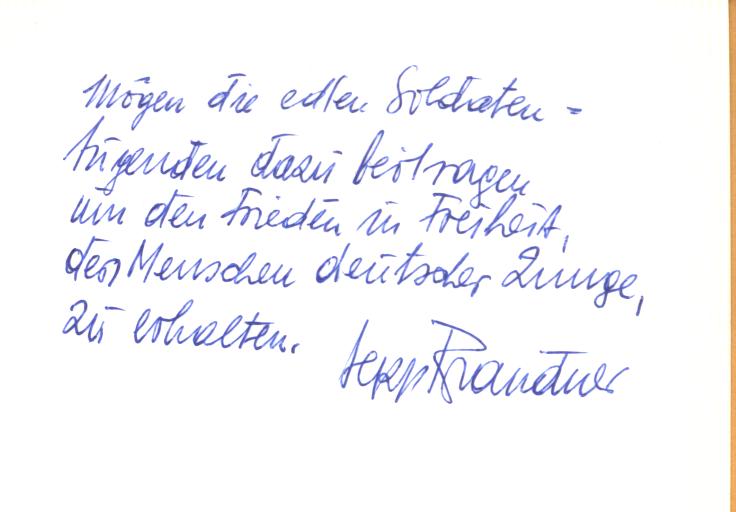 Mögen die edlen Soldaten-
tugenden dazu beitragen
um den Frieden in Freiheit,
der Menschen deutscher Zunge,
zu erhalten.
Sepp Brandner